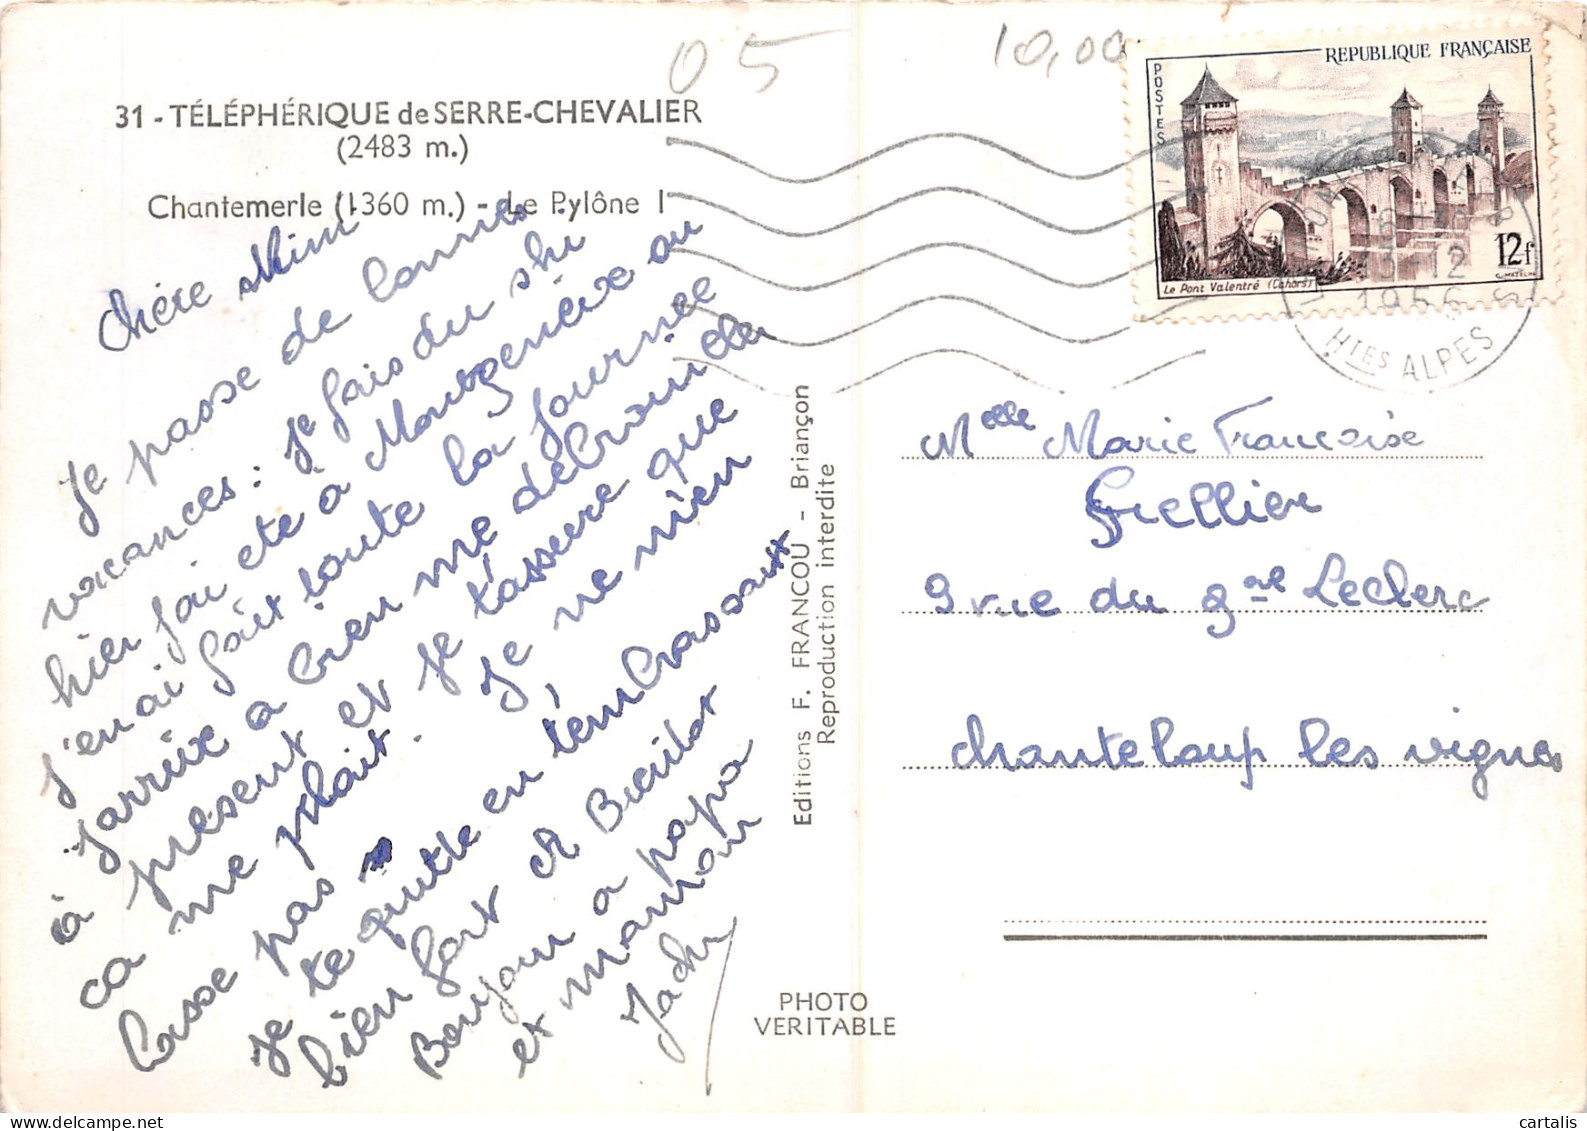 05
10,00
31 - TÉLÉPHÉRIQUE de SERRE-CHEVALIER
(2483 m.)
Chantemerle (1360 m.) - Le Pylône I
Chère Mimi
Je passe de bonnes
vacances : je fais du ski
hier j'ai été à Montgenèvre ou
j'en ai fait toute la journée
J'arrive a bien me debrouiller
à présent et je t'assure que
ca me plait. Je ne m'en
lasse pas
Je te quitte en t'embrassant
bien fort
Bonjour a papa
et maman
Jacky
Editions F. FRANCOU - Briançon
Reproduction interdite
PHOTO
VERITABLE
REPUBLIQUE FRANÇAISE
POSTES
12f
Le Pont Valentré (Cahors)
12
1956
Htes ALPES
Melle Marie Francoise
Grellier
9 rue du gal Leclerc
Chanteloup les vignes
cartalis